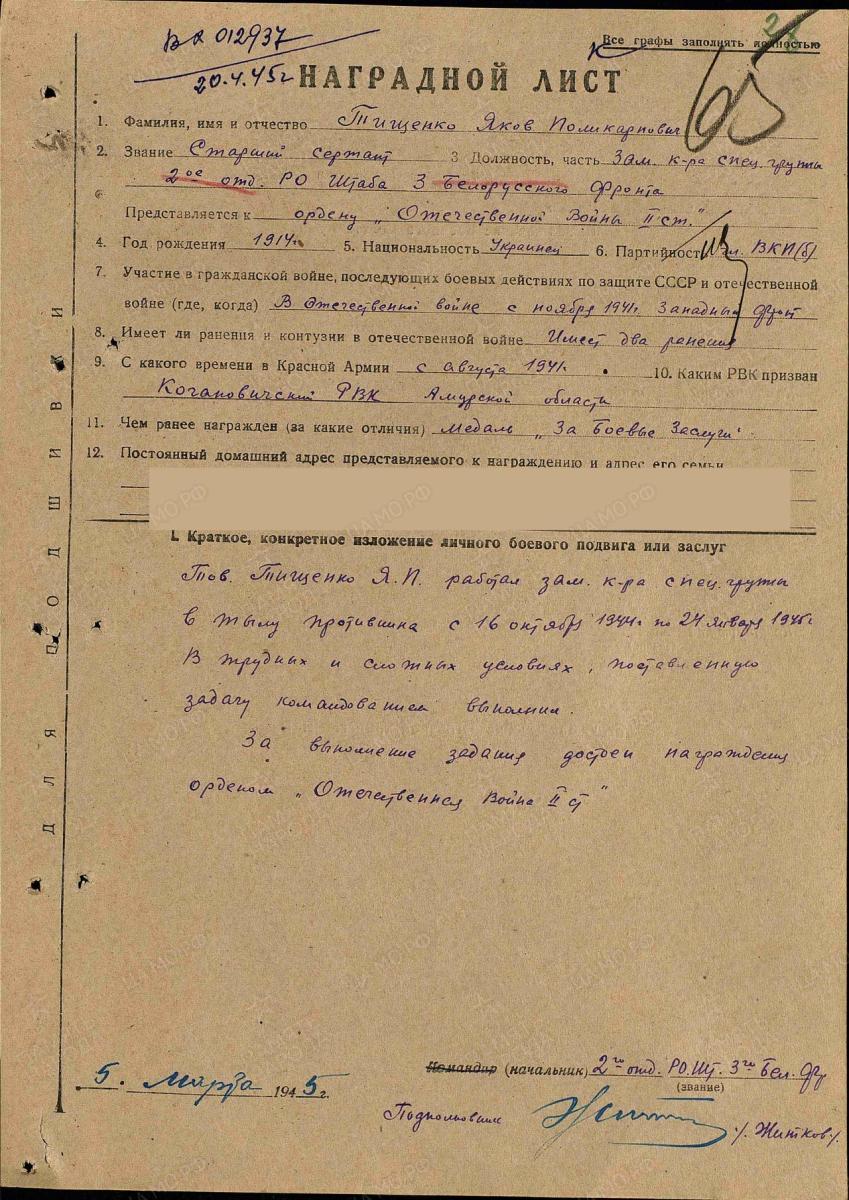 ВД 012937
20.4.45г
Все графы заполнять полностью
НАГРАДНОЙ ЛИСТ
1. Фамилия, имя и отчество Тищенко Яков Поликарпович
2. Звание Старший сержант 3 Должность, часть Зам. к-ра спец. группы
2ое отд. РО Штаба 3 Белорусского Фронта
Представляется к ордену „Отечественной Войны II ст."
4. Год рождения 1914г. 5. Национальность Украинец 6. Партийность чл. ВКП(б)
7. Участие в гражданской войне, последующих боевых действиях по защите СССР и отечественной
войне (где, когда) В Отечественной войне с ноября 1941г. Западный фронт
8. Имеет ли ранения и контузии в отечественной войне Имеет два ранения
9. С какого времени в Красной Армии с августа 1941г. 10. Каким РВК призван
Когановичский РВК Амурской области
11. Чем ранее награжден (за какие отличия) Медаль „За Боевые Заслуги".
12. Постоянный домашний адрес представляемого к награждению и адрес его семьи
I. Краткое, конкретное изложение личного боевого подвига или заслуг
Тов. Тищенко Я.П. работал зам. к-ра спец. группы
в тылу противника с 16 октября 1944г по 24 января 1945г
В трудных и сложных условиях, поставленную
задачу командованием выполнил.
За выполнение задания достоен награждения
орденом „Отечественная Война II ст"
ДЛЯ ПОДШИВКИ
Командир (начальник) 2го отд. РО. Шт. 3го Бел. Фр
(звание)
5. Марта 1945г.
Подполковник /. Житков /.